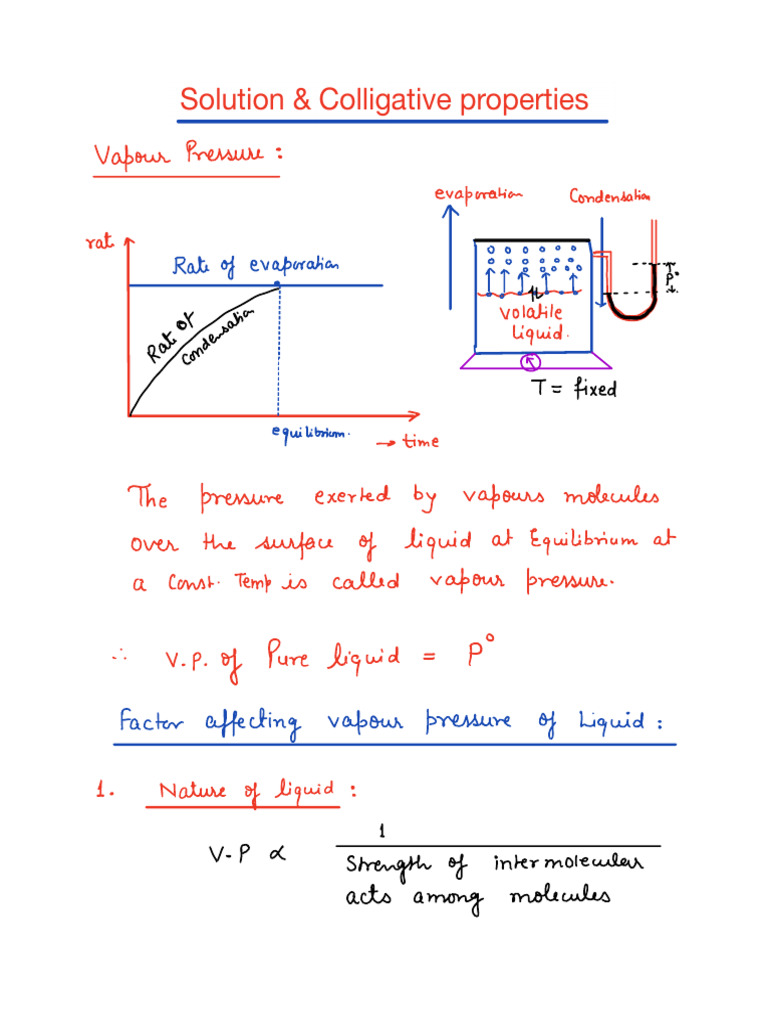 Solution & Colligative properties
Vapour Pressure :
evaporation
Condensation
rat
Rate of evaporation
Rate of
condensation
equilibrium.
→ time
P°
volatile
liquid.
T = fixed
The pressure exerted by vapours molecules
over the surface of liquid at Equilibrium at
a Const. Temp is called vapour pressure.
∴ V.P. of Pure liquid = P°
Factor affecting vapour pressure of Liquid :
1. Nature of liquid :
1
V-P ∝
Strength of intermolecular
acts among molecules